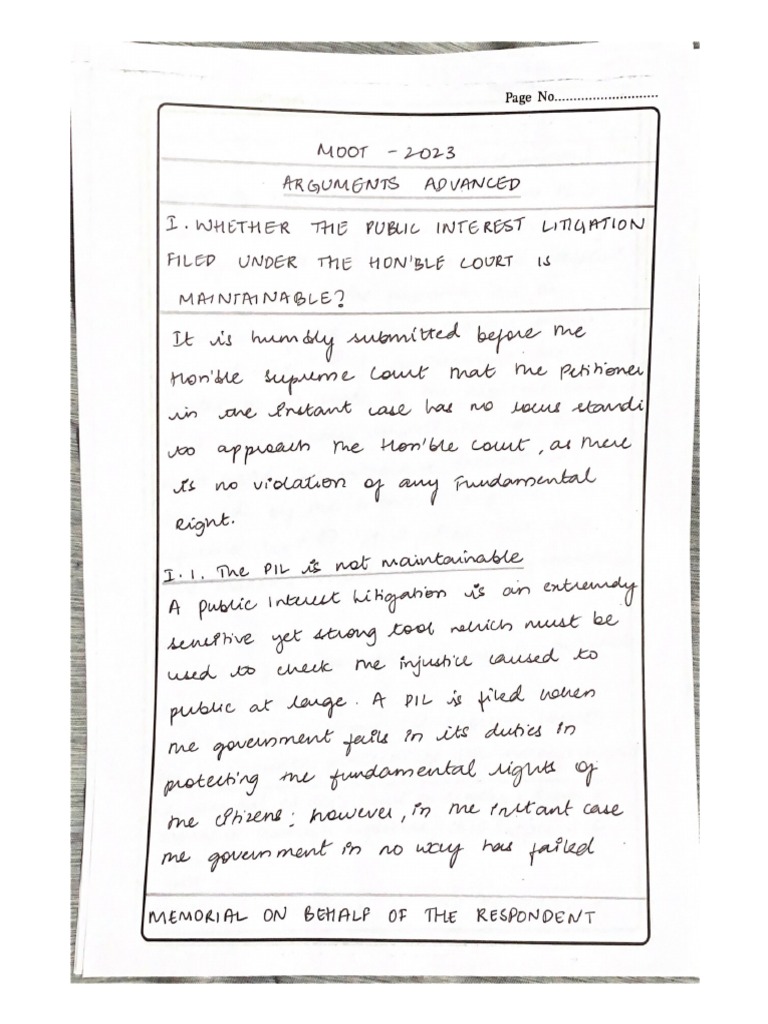 Page No............................
MOOT - 2023
ARGUMENTS ADVANCED
I. WHETHER THE PUBLIC INTEREST LITIGATION
FILED UNDER THE HON'BLE COURT IS
MAINTAINABLE?
It is humbly submitted before the
Hon'ble Supreme Court that the Petitioner
in the Instant case has no locus standi
to approach the Hon'ble Court, as there
is no violation of any Fundamental
Right.
I.1. The PIL is not maintainable
A Public Interest Litigation is an extremely
sensitive yet strong tool which must be
used to check the injustice caused to
public at large. A PIL is filed when
the government fails in its duties in
protecting the fundamental rights of
the citizens; however, in the instant case
the government in no way has failed
MEMORIAL ON BEHALF OF THE RESPONDENT